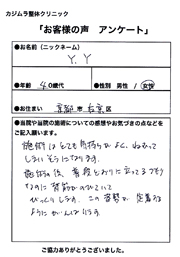 カジムラ整体クリニック
「お客様の声　アンケート」
●お名前（ニックネーム）
Y.Y
●年齢 40歳代
●性別 男性 / 女性
●お住まい 京都市右京区
●当院や当院の施術についての感想やお気づきの点などをご記入願います。
施術はとても気持ちよく、ねむって
しまいそうになります。
施術の後、普段どおりに立ってるつもり
なのに背筋がのびていて
びっくりします。この姿勢が定着する
ようにがんばります。
ご協力ありがとうございました。